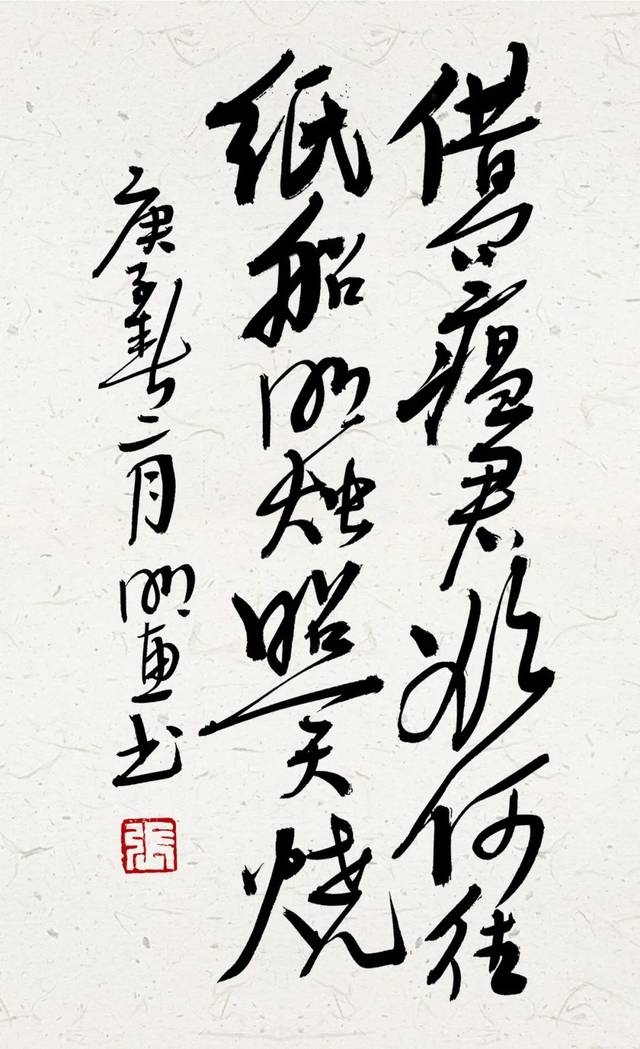 借问瘟君欲何往
纸船明烛照天烧
庚子春二月明惠书
張